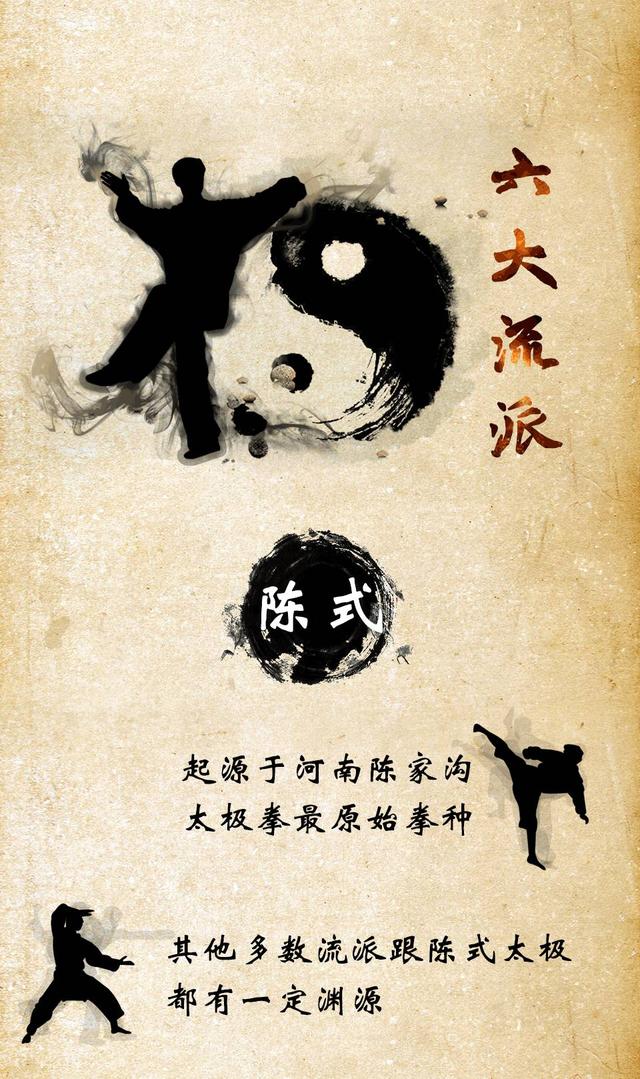 六大流派
陈式
起源于河南陈家沟
太极拳最原始拳种
其他多数流派跟陈式太极
都有一定渊源